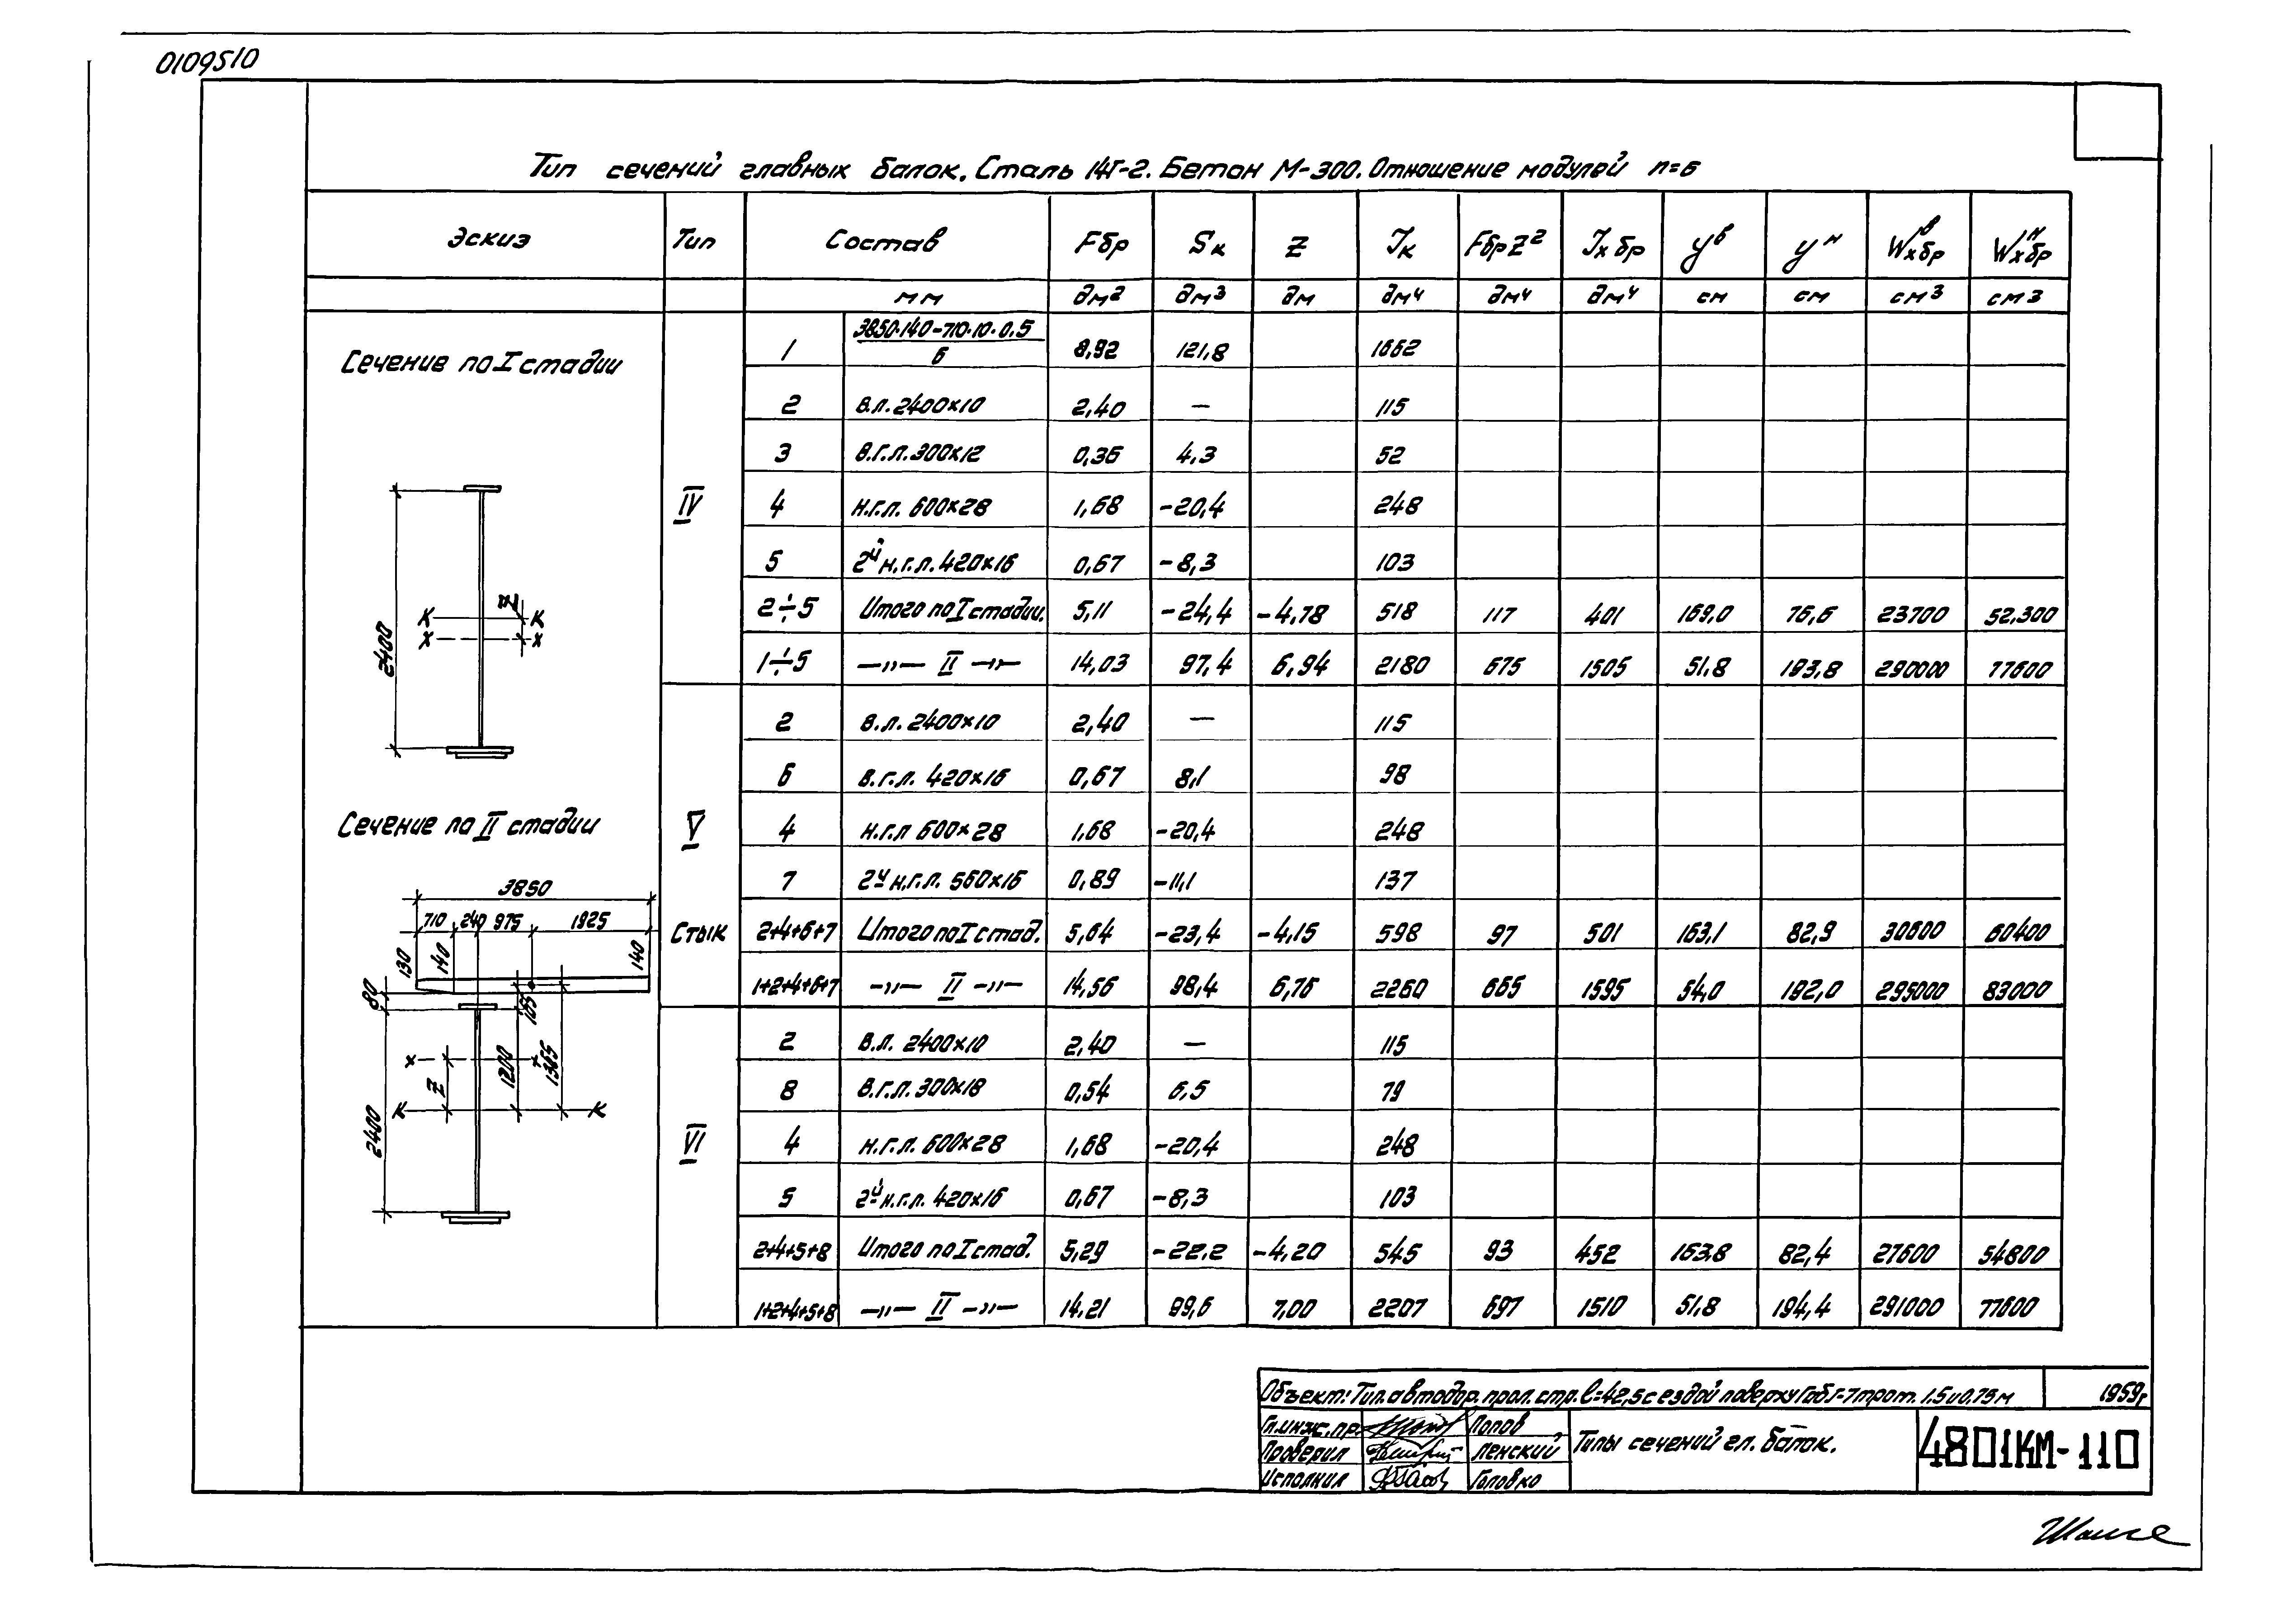 0109510
Тип сечений главных балок. Сталь 14Г-2. Бетон М-300. Отношение модулей n=6
Эскиз Тип Состав Fбр Sк Z Jк FбрZ² Jx бр yᵇ yᴴ Wᵇxбр Wᴴxбр
мм дм² дм³ дм дм⁴ дм⁴ дм⁴ см см см³ см³
Сечение по I стадии
2400
К К
Z
х х
Сечение по II стадии
3850
710 240 975 1925
130 140 140
80
165
х х
Z 1200 1365
К К
2400
IV
1 3850·140-710·10·0,5 / 6 8,92 121,8 1662
2 В.л. 2400×10 2,40 — 115
3 В.г.л. 300×12 0,36 4,3 52
4 Н.г.л. 600×28 1,68 -20,4 248
5 2й н.г.л. 420×16 0,67 -8,3 103
2÷5 Итого по I стадии. 5,11 -24,4 -4,78 518 117 401 169,0 76,6 23700 52,300
1÷5 —„— II —„— 14,03 97,4 6,94 2180 675 1505 51,8 193,8 290000 77600
V
Стык
2 В.л. 2400×10 2,40 — 115
6 В.г.л. 420×16 0,67 8,1 98
4 Н.г.л 600×28 1,68 -20,4 248
7 2й н.г.л. 560×16 0,89 -11,1 137
2+4+6+7 Итого по I стад. 5,64 -23,4 -4,15 598 97 501 163,1 82,9 30600 60400
1+2+4+6+7 —„— II —„— 14,56 98,4 6,76 2260 665 1595 54,0 192,0 295000 83000
VI
2 В.л. 2400×10 2,40 — 115
8 В.г.л. 300×18 0,54 6,5 79
4 Н.г.л. 600×28 1,68 -20,4 248
5 2й н.г.л. 420×16 0,67 -8,3 103
2+4+5+8 Итого по I стад. 5,29 -22,2 -4,20 545 93 452 163,8 82,4 27600 54800
1+2+4+5+8 —„— II —„— 14,21 99,6 7,00 2207 697 1510 51,8 194,4 291000 77600
Объект: Тип. автодор. прол. стр. l=42,5 с ездой поверху Габ Г-7 трот. 1,5 и 0,75 м 1959г
Гл.инж.пр. Попов
Проверил Ленский
Исполнил Головко
Типы сечений гл. балок.
4801КМ-110